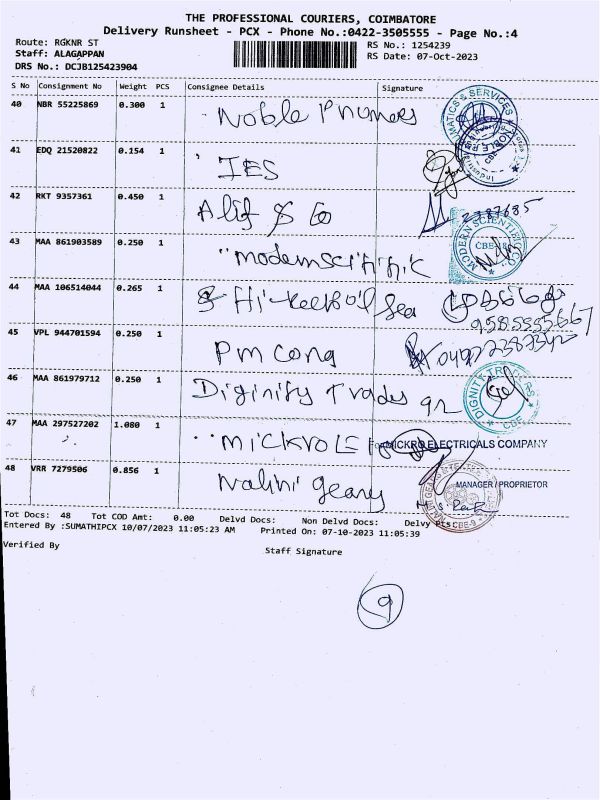 THE PROFESSIONAL COURIERS, COIMBATORE
Delivery Runsheet - PCX - Phone No.:0422-3505555 - Page No.:4
Route: RGKNR ST
RS No.: 1254239
Staff: ALAGAPPAN
RS Date: 07-Oct-2023
DRS No.: DCJB125423904
S No Consignment No Weight PCS Consignee Details Signature
40 NBR 55225869 0.300 1 Noble
41 EDQ 21520822 0.154 1 IES
42 RKT 9357361 0.450 1 Alif & Co 2387685
43 MAA 861903589 0.250 1 modernscitific MODERN SCIENTIFIC CO. CBE-18
44 MAA 106514044 0.265 1
45 VPL 944701594 0.250 1 Pm
46 MAA 861979712 0.250 1 Diginity Trades DIGNITY TRADERS CBE
47 MAA 297527202 1.080 1 mickrole For MICKRO ELECTRICALS COMPANY
48 VRR 7279506 0.856 1 Nalini gears MANAGER / PROPRIETOR
CBE-9
Tot Docs: 48 Tot COD Amt: 0.00 Delvd Docs: Non Delvd Docs: Delvy Pts
Entered By :SUMATHIPCX 10/07/2023 11:05:23 AM Printed On: 07-10-2023 11:05:39
Verified By
Staff Signature
9